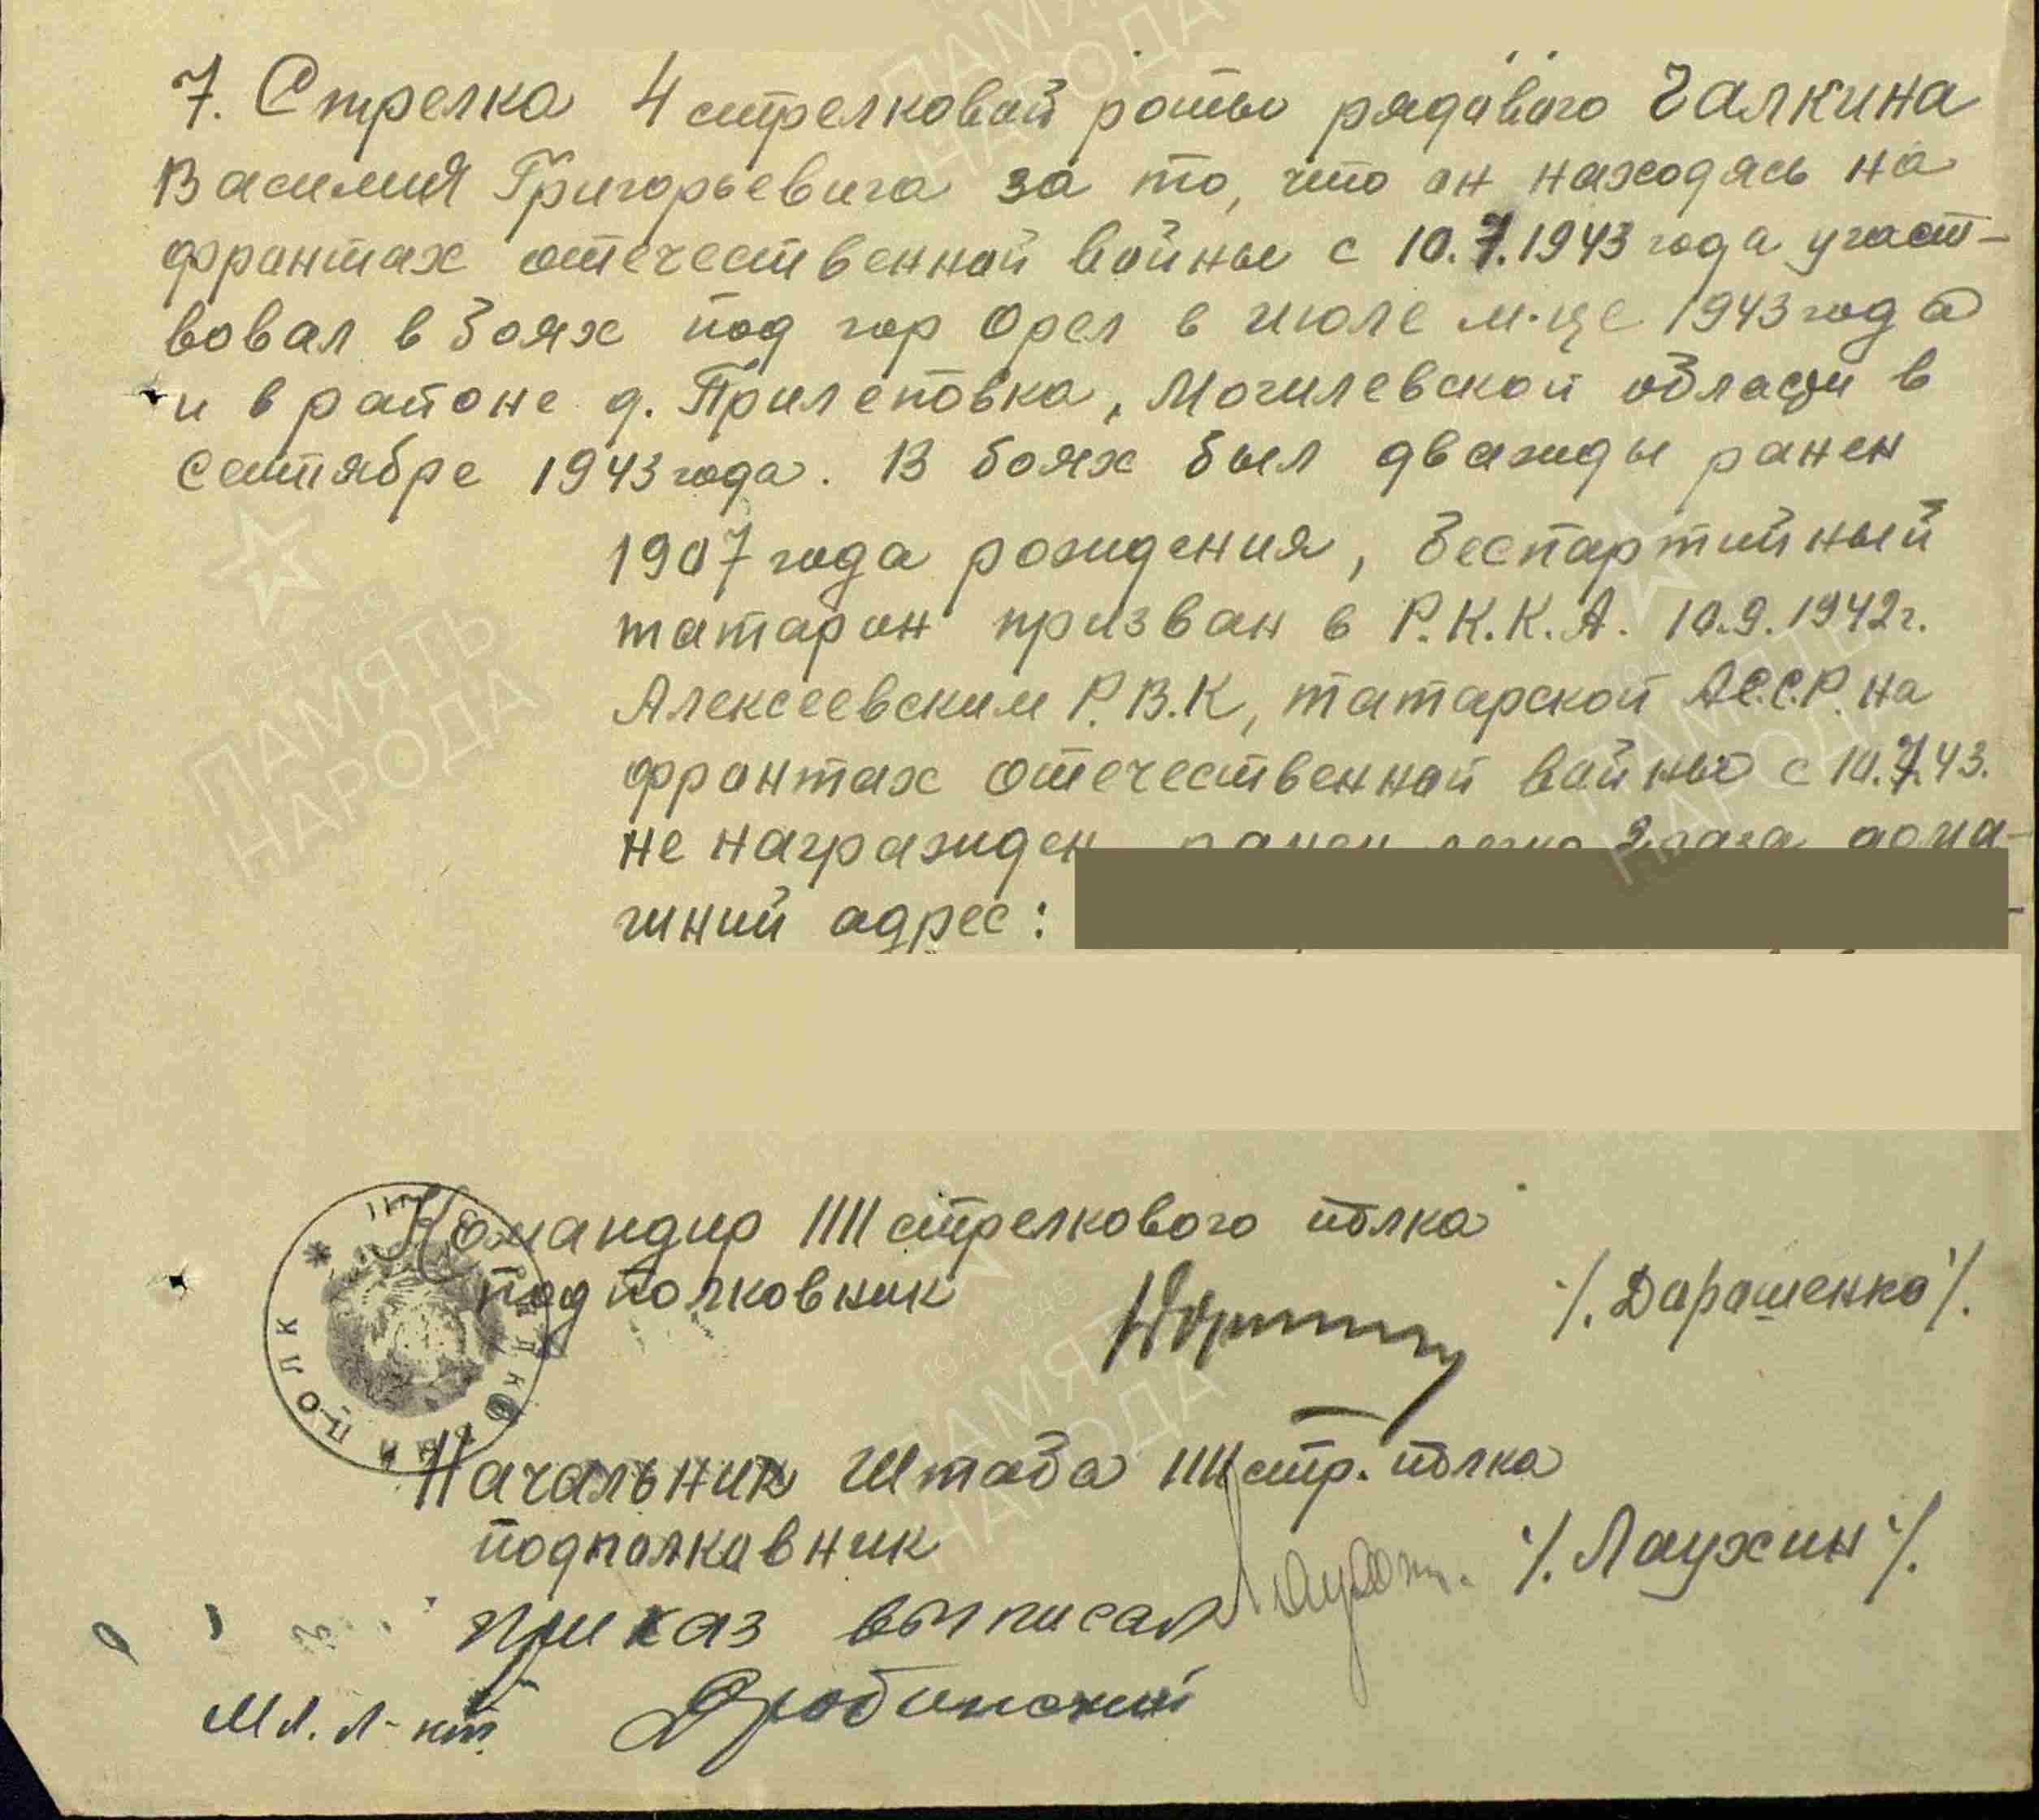 7. Стрелка 4 стрелковой роты рядового Чалкина
Василия Григорьевича за то, что он находясь на
фронтах отечественной войны с 10.7.1943 года участ-
вовал в боях под гор Орел в июле м-це 1943 года
и в районе д. Прилеповка, Могилевской области в
сентябре 1943 года. В боях был дважды ранен
1907 года рождения, беспартийный
татарин призван в Р.К.К.А. 10.9.1942г.
Алексеевским Р.В.К, татарской АС.С.Р. на
фронтах отечественной войны с 10.7.43.
не награжден ранен легко 2 раза дома-
шний адрес:
Командир 1111 стрелкового полка
подполковник /. Дорошенко /.
Начальник штаба 1111 стр. полка
подполковник /. Лаухин /.
приказ выписал
Мл. л-нт
ПОЛК
ПАМЯТЬ
НАРОДА